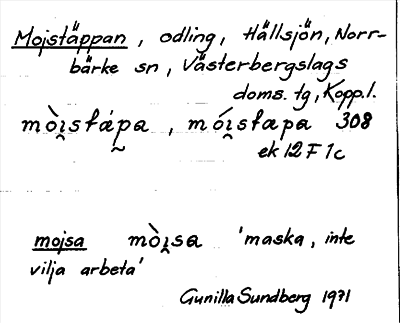 Mojstäppan, odling, Hällsjön, Norr-
bärke sn, Västerbergslags
doms. tg, Kopp.l.
mòi̯stáp̰a, mói̯stapa 308
ek 12 F 1c
mojsa mòi̯sa 'maska, inte
vilja arbeta'
Gunilla Sundberg 1971